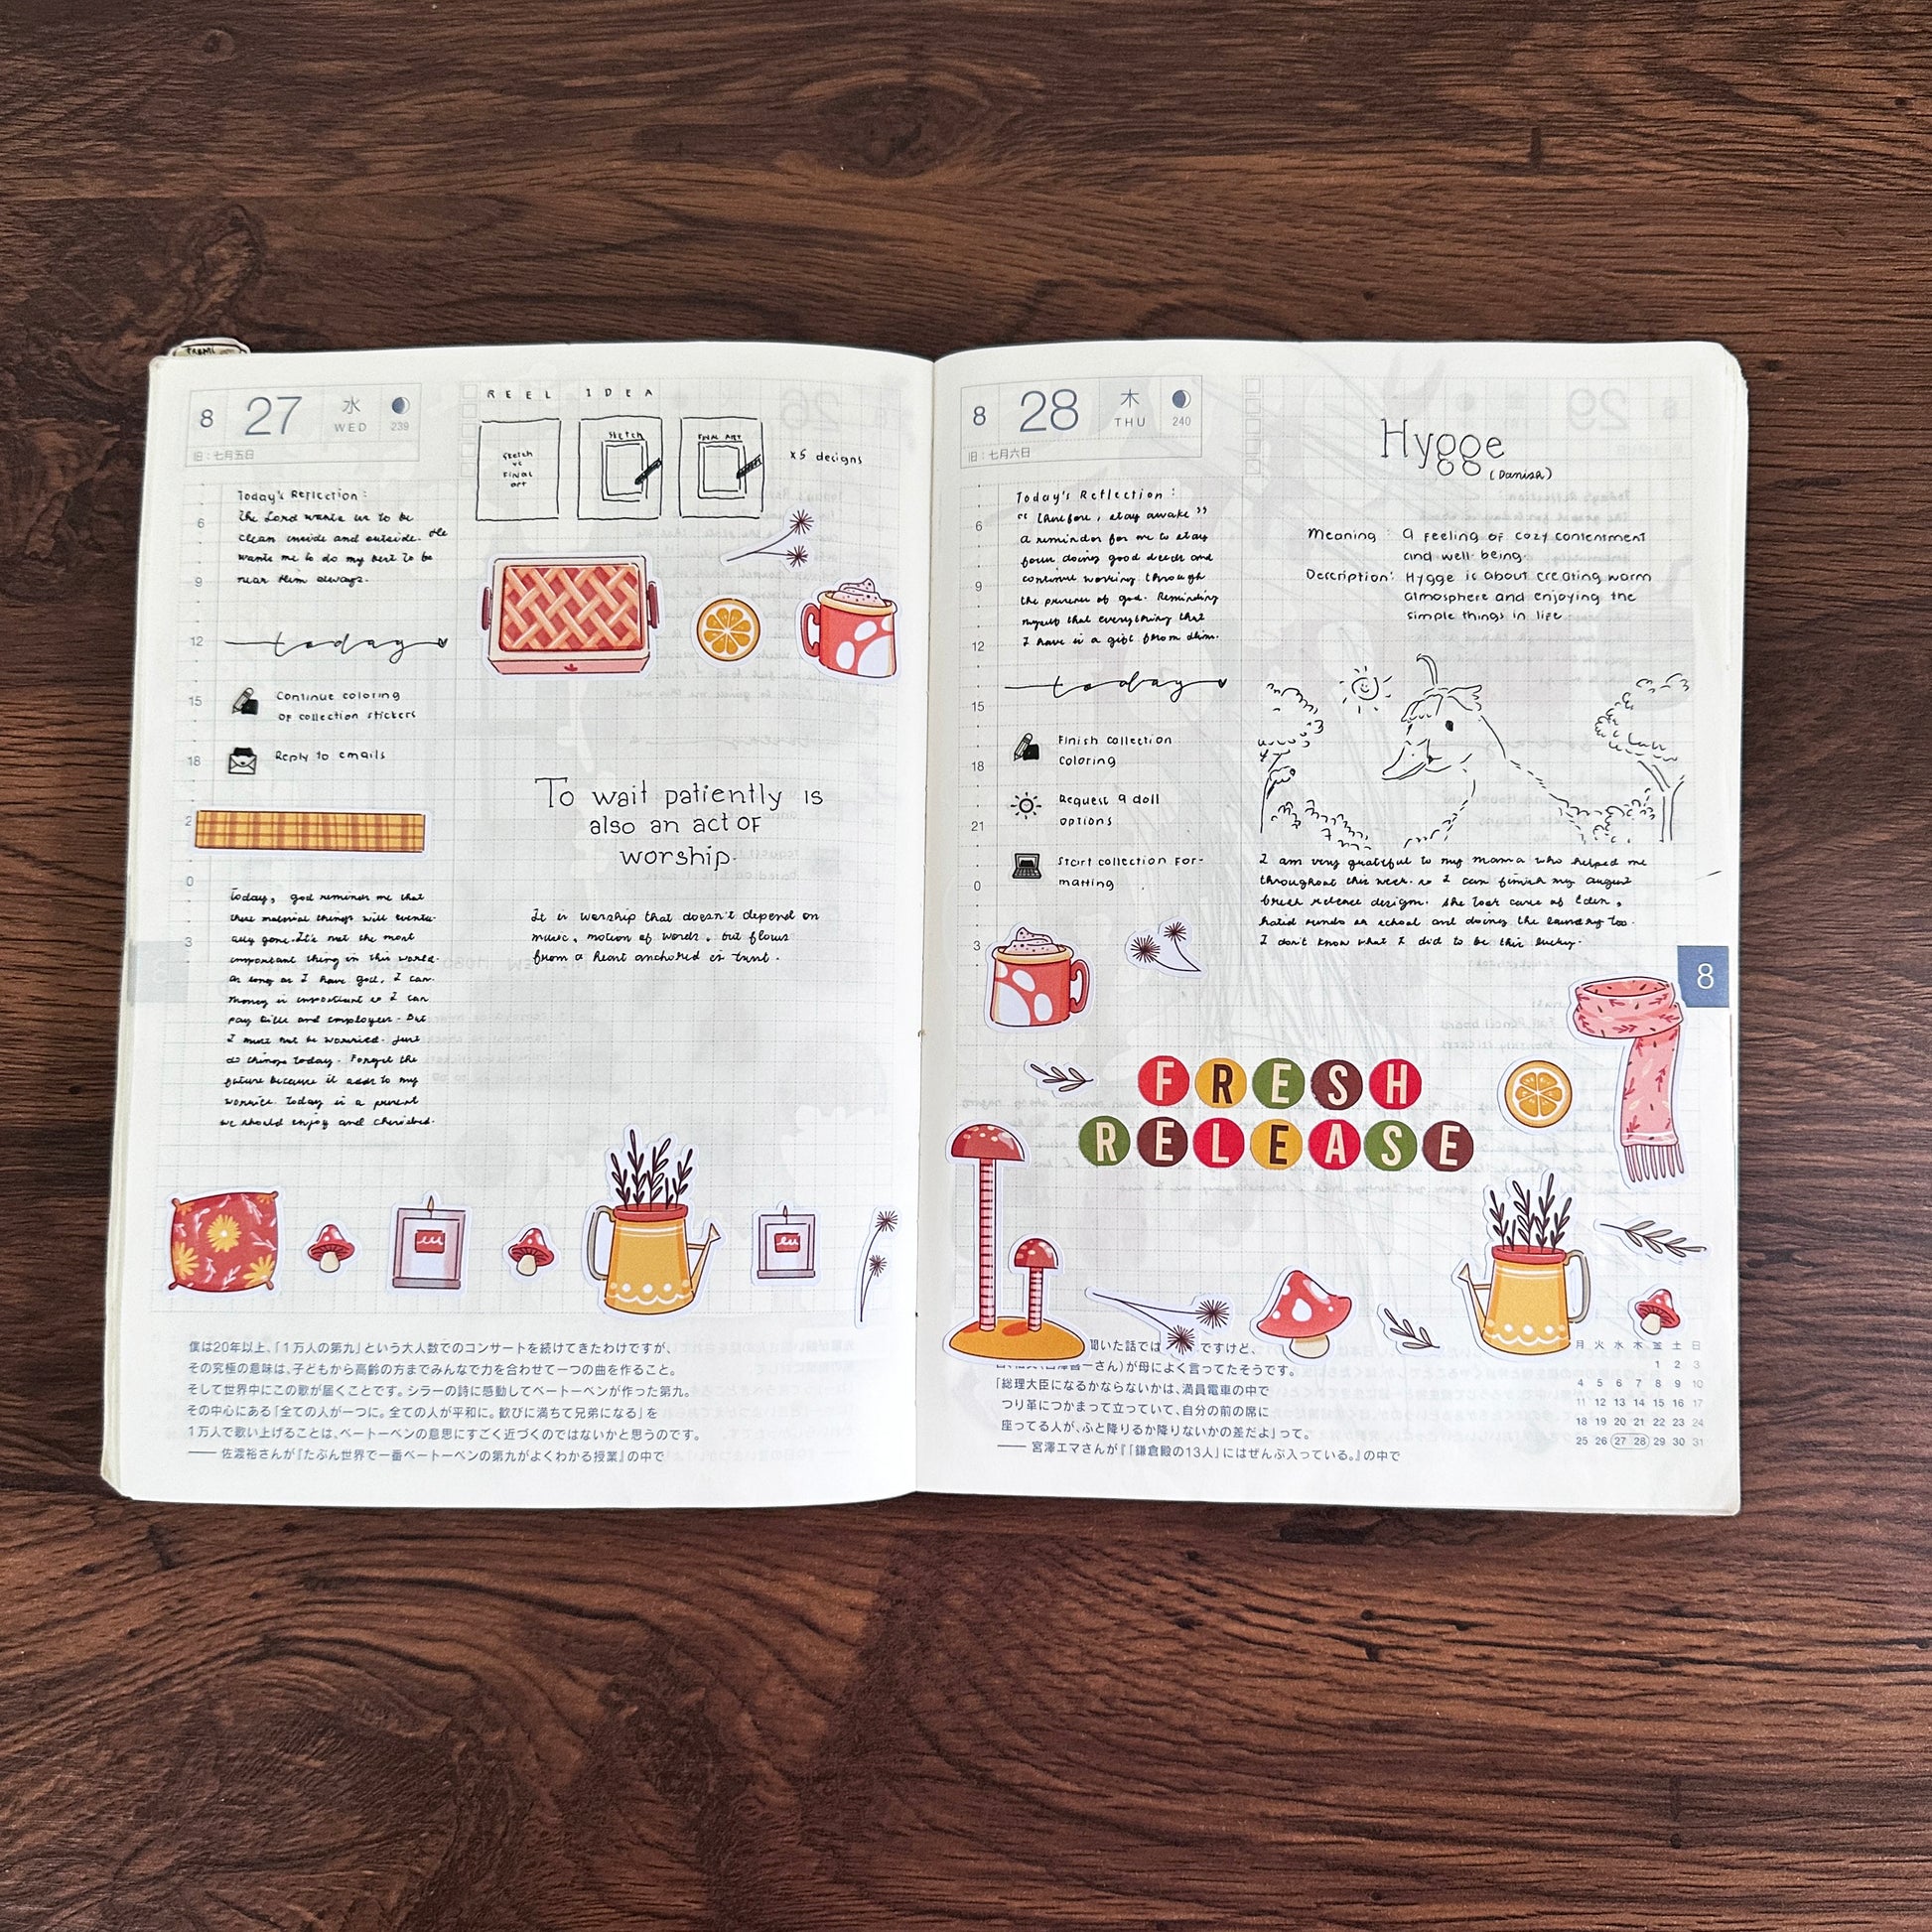 8 27 水 WED 239
旧:七月五日
REEL IDEA
Sketch vs Final art
Sketch
Final art
x5 designs
Today's Reflection:
The Lord wants us to be
clean inside and outside. He
wants me to do my best to be
near Him always.
6
9
12
15
18
21
0
3
today
Continue coloring
of collection stickers
Reply to emails
Today, god reminds me that
these material things will eventu-
ally gone. It's not the most
important thing in this world.
As long as I have god, I can.
Money is important so I can
pay bills and employees. But
I must not be worried. Just
do things today. Forget the
future because it adds to my
worries. Today is a present
we should enjoy and cherished.
To wait patiently is
also an act of
worship.
It is worship that doesn't depend on
music, motion of words, but flows
from a heart anchored in trust.
僕は20年以上、「1万人の第九」という大人数でのコンサートを続けてきたわけですが、
その究極の意味は、子どもから高齢の方までみんなで力を合わせて一つの曲を作ること。
そして世界中にこの歌が届くことです。シラーの詩に感動してベートーベンが作った第九。
その中心にある「全ての人が一つに。全ての人が平和に。歓びに満ちて兄弟になる」を
1万人で歌い上げることは、ベートーベンの意思にすごく近づくのではないかと思うのです。
—— 佐渡裕さんが『たぶん世界で一番ベートーベンの第九がよくわかる授業』の中で
8 28 木 THU 240
旧:七月六日
Today's Reflection:
"Therefore, stay awake"
a reminder for me to stay
focus, doing good deeds and
continue working through
the presence of god. Reminding
myself that everything that
I have is a gift from Him.
6
9
12
15
18
21
0
3
today
Finish collection
coloring
Request a doll
options
Start collection for-
matting
Hygge
(Danish)
Meaning: a feeling of cozy contentment
and well-being.
Description: Hygge is about creating warm
atmosphere and enjoying the
simple things in life
I am very grateful to my mama who helped me
throughout this week so I can finish my august
release design. She took care of Eden,
school and doing the laundry too.
I don't know what I did to be this lucky.
8
FRESH
RELEASE
聞いた話では ですけど、
さん)が母によく言ってたそうです。
「総理大臣になるかならないかは、満員電車の中で
つり革につかまって立っていて、自分の前の席に
座ってる人が、ふと降りるか降りないかの差だよ」って。
—— 宮澤エマさんが『「鎌倉殿の13人」にはぜんぶ入っている。』の中で
月 火 水 木 金 土 日
1 2 3
4 5 6 7 8 9 10
11 12 13 14 15 16 17
18 19 20 21 22 23 24
25 26 27 28 29 30 31